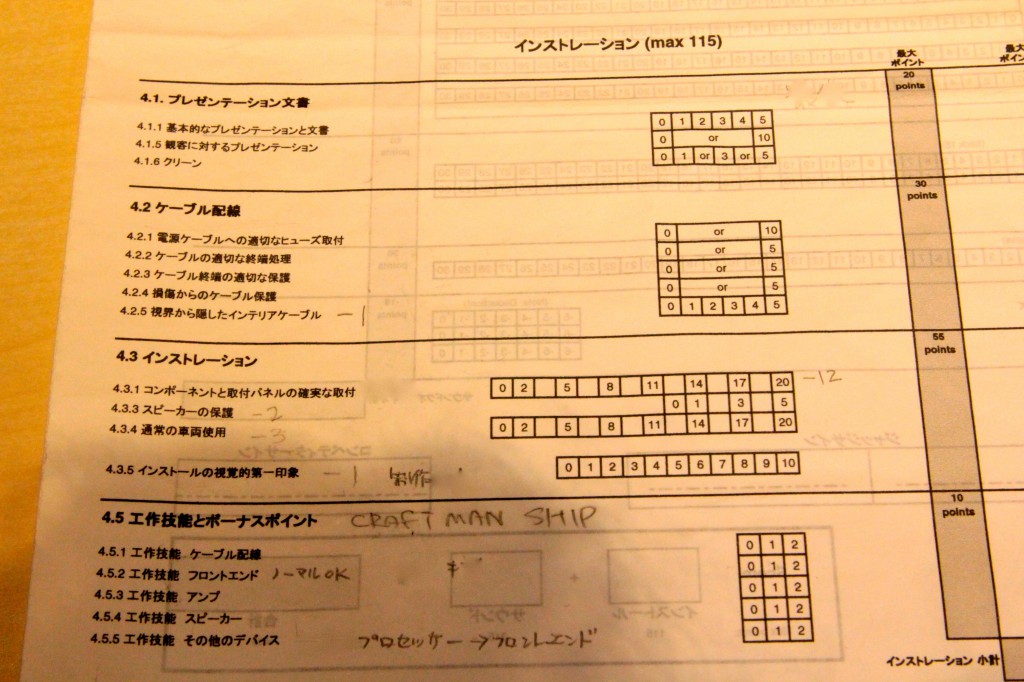 インストレーション (max 115)
最大
ポイント
最大
ポイン
20
points
4.1. プレゼンテーション文書
4.1.1 基本的なプレゼンテーションと文書
0 1 2 3 4 5
4.1.5 観客に対するプレゼンテーション
0 or 10
4.1.6 クリーン
0 1 or 3 or 5
30
points
4.2 ケーブル配線
4.2.1 電源ケーブルへの適切なヒューズ取付
0 or 10
4.2.2 ケーブルの適切な終端処理
0 or 5
4.2.3 ケーブル終端の適切な保護
0 or 5
4.2.4 損傷からのケーブル保護
0 or 5
4.2.5 視界から隠したインテリアケーブル -1
0 1 2 3 4 5
55
points
4.3 インストレーション
4.3.1 コンポーネントと取付パネルの確実な取付
0 2 5 8 11 14 17 20 -12
4.3.3 スピーカーの保護 -2
0 1 3 5
4.3.4 通常の車両使用 -3
0 2 5 8 11 14 17 20
4.3.5 インストールの視覚的第一印象 -1
0 1 2 3 4 5 6 7 8 9 10
10
points
4.5 工作技能とボーナスポイント CRAFT MAN SHIP
4.5.1 工作技能 ケーブル配線
0 1 2
4.5.2 工作技能 フロントエンド ノーマルOK
0 1 2
4.5.3 工作技能 アンプ
0 1 2
4.5.4 工作技能 スピーカー
0 1 2
4.5.5 工作技能 その他のデバイス プロセッサー→フロントエンド
0 1 2
インストレーション 小計